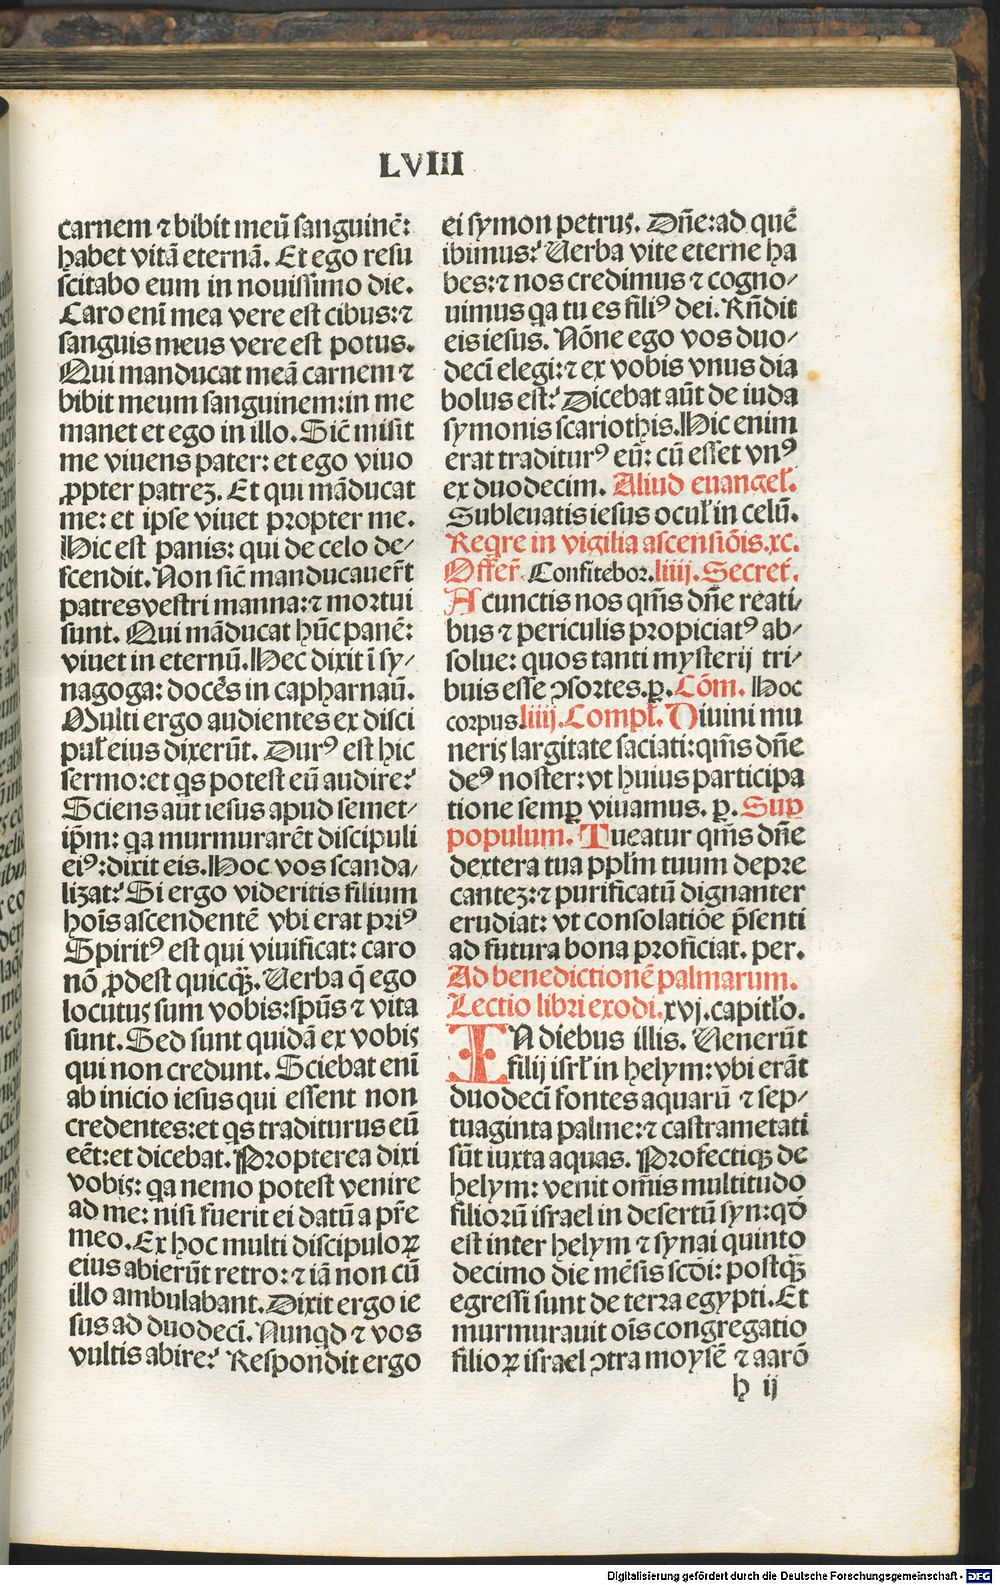 LVIII
carnem ⁊ bibit meū sanguinē:
habet vitā eternā. Et ego resu
scitabo eum in nouissimo die.
Caro eni̅ mea vere est cibus:⁊
sanguis meus vere est potus.
Qui manducat meā carnem ⁊
bibit meum sanguinem:in me
manet et ego in illo. Sic̄ misit
me viuens pater: et ego viuo
ꝓpter patreꝫ. Et qui māducat
me: et ipse viuet propter me.
Hic est panis: qui de celo de⸗
scendit. Non sic̄ manducauer̄t
patres vestri manna:⁊ mortui
sunt. Qui māducat hūc panē:
viuet in eternū. Hec dixit ī sy⸗
nagoga: docēs in capharnaū.
Multi ergo audientes ex disci
pul̄ eius dixerūt. Durꝰ est hic
sermo:et qs potest eū audire?
Sciens aūt iesus apud semet⸗
ip̄m: qa murmurarēt discipuli
eiꝰ:dixit eis. Hoc vos scanda⸗
lizat? Si ergo videritis filium
hoīs ascendentē vbi erat priꝰ
Spiritꝰ est qui viuificat: caro
nō ꝓdest quicqꝫ̄. Uerba q̄ ego
locutus sum vobis:spūs ⁊ vita
sunt. Sed sunt quidā ex vobis
qui non credunt. Sciebat enī
ab inicio iesus qui essent non
credentes:et qs traditurus eū
eēt:et dicebat. Propterea dixi
vobis: qa nemo potest venire
ad me: nisi fuerit ei datū a pr̄e
meo. Ex hoc multi discipuloꝝ
eius abierūt retro:⁊ iā non cū
illo ambulabant. Dixit ergo ie
sus ad duodecī. Nunqd ⁊ vos
vultis abire? Respondit ergo
ei symon petrus. Dn̄e:ad quē
ibimus? Uerba vite eterne ha
bes:⁊ nos credimus ⁊ cogno⸗
uimus qa tu es filiꝰ dei. Rn̄dit
eis iesus. Nōne ego vos duo⸗
decī elegi:⁊ ex vobis vnus dia
bolus est? Dicebat aūt de iuda
symonis scariothis. Hic enim
erat traditurꝰ eū: cū esset vnꝰ
ex duodecim. Aliud euangel̄.
Subleuatis iesus ocul̄ in celū.
Reqre in vigilia ascensiōis.xc.
Offer̄. Confitebor.liiij. Secret̄.
A cunctis nos qm̄s dn̄e reati⸗
bus ⁊ periculis propiciatꝰ ab⸗
solue: quos tanti mysterij tri⸗
buis esse ↄsortes. p̲. Cōm. Hoc
corpus.liiij. Compl̄. Diuini mu
neris largitate saciati:qm̄s dn̄e
deꝰ noster:vt huius participa
tione semꝑ viuamus. p̲. Suꝑ
populum. Tueatur qm̄s dn̄e
dextera tua ppl̄m tuum depre
canteꝫ:⁊ purificatū dignanter
erudiat: vt consolatiōe p̄senti
ad futura bona proficiat. per.
Ad benedictionē palmarum.
Lectio libri exodi.xvj.capitl̄o.
IN diebus illis. Uenerūt
filij isrl̄ in helym:vbi erāt
duodecī fontes aquarū ⁊ sep⸗
tuaginta palme:⁊ castrametati
sūt iuxta aquas. Profectiqꝫ de
helym: venit om̄is multitudo
filiorū israel in desertū syn:qd̄
est inter helym ⁊ synai quinto
decimo die mēsis scd̄i: postqꝫ̄
egressi sunt de terra egypti. Et
murmurauit oīs congregatio
filioꝝ israel ↄtra moysē ⁊ aarō
h ij
Digitalisierung gefördert durch die Deutsche Forschungsgemeinschaft - DFG